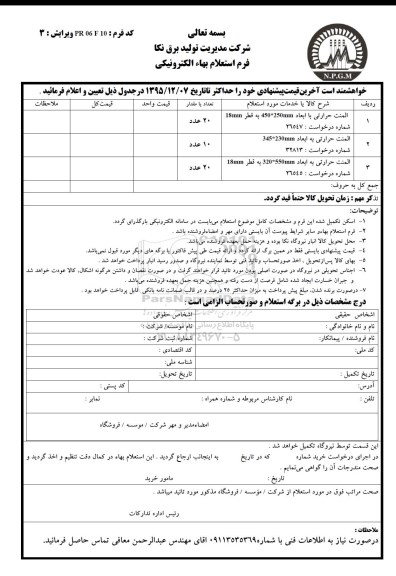 بسمه تعالی
کد فرم : PR 06 F 10 ویرایش : ۳
شرکت مدیریت تولید برق نکا
فرم استعلام بهاء الکترونیکی
N.P.G.M
خواهشمند است آخرین قیمت پیشنهادی خود را حداکثر تا تاریخ ۱۳۹۵/۱۲/۰۷ در جدول ذیل تعیین و اعلام فرمائید .
ردیف شرح کالا یا خدمات مورد استعلام تعداد یا مقدار قیمت واحد قیمت کل ملاحظات
۱ المنت حرارتی با ابعاد 450*250mm به قطر 18mm ۲۰ عدد
شماره درخواست : ۳۶۵۴۷
۲ المنت حرارتی به ابعاد 345*230mm ۱۰ عدد
شماره درخواست : ۳۹۸۱۳
۳ المنت حرارتی به ابعاد 320*550mm به قطر 18mm ۲۰ عدد
شماره درخواست : ۳۶۵۴۵
جمع کل به حروف:
تذکر مهم : زمان تحویل کالا حتماً قید گردد.
توضیحات:
۱- اسکن تکمیل شده این فرم و مشخصات کامل موضوع استعلام می‌بایست در سامانه الکترونیکی بارگذاری گردد.
۲- فرم استعلام بهاء و سایر شرایط پیوست آن بایستی دارای مهر و امضاء فروشنده باشد.
۳- محل تحویل کالا انبار نیروگاه نکا بوده و هزینه حمل بعهده فروشنده می‌باشد.
۴- قیمت پیشنهادی بایستی فقط در همین برگ ارائه گردد و ارائه قیمت طی پیش فاکتور یا برگه های دیگر مورد قبول نمی‌باشد.
۵- بهای کالا پس از تحویل ، اخذ صورتحساب و تائید فنی توسط نماینده نیروگاه و صدور رسید انبار پرداخت خواهد شد .
۶- اجناس تحویلی در نیروگاه در صورت اصلی بودن مورد تائید قرار خواهند گرفت و در صورت نقصان و داشتن هرگونه اشکال، کالا عودت خواهد شد
و جبران خسارت ایجاد شده شامل فرصت از دست رفته و همچنین هزینه حمل بعهده فروشنده می‌باشد .
۷- درصورت برنده شدن، مبلغ پیش پرداخت به میزان حداکثر ۲۵ درصد و در قالب ضمانت نامه بانکی قابل پرداخت خواهد بود .
درج مشخصات ذیل در برگه استعلام و صورتحساب الزامی است :
اشخاص حقیقی اشخاص حقوقی
نام و نام خانوادگی : نام موسسه/ شرکت :
نام فروشنده / پیمانکار: شماره ثبت شرکت :
کد ملی: کد اقتصادی :
شناسه ملی:
تاریخ تکمیل : تاریخ تحویل:
آدرس: کد پستی :
تلفن : نام کارشناس مربوطه و شماره همراه : نمابر :
امضاءمدیر و مهر شرکت / موسسه / فروشگاه
این قسمت توسط نیروگاه تکمیل خواهد شد .
در اجرای درخواست خرید شماره که در تاریخ به اینجانب ارجاع گردید . این استعلام بهاء در کمال دقت تنظیم و اخذ گردید و
صحت مندرجات آن را گواهی می‌نمایم .
تاریخ : مامور خرید
صحت مراتب فوق در مورد استعلام از شرکت / مؤسسه / فروشگاه مذکور مورد تائید میباشد .
رئیس اداره تدارکات
ملاحظات :
درصورت نیاز به اطلاعات فنی با شماره ۰۹۱۱۳۵۳۵۳۶۹ اقای مهندس عبدالرحمن معافی تماس حاصل فرمائید.